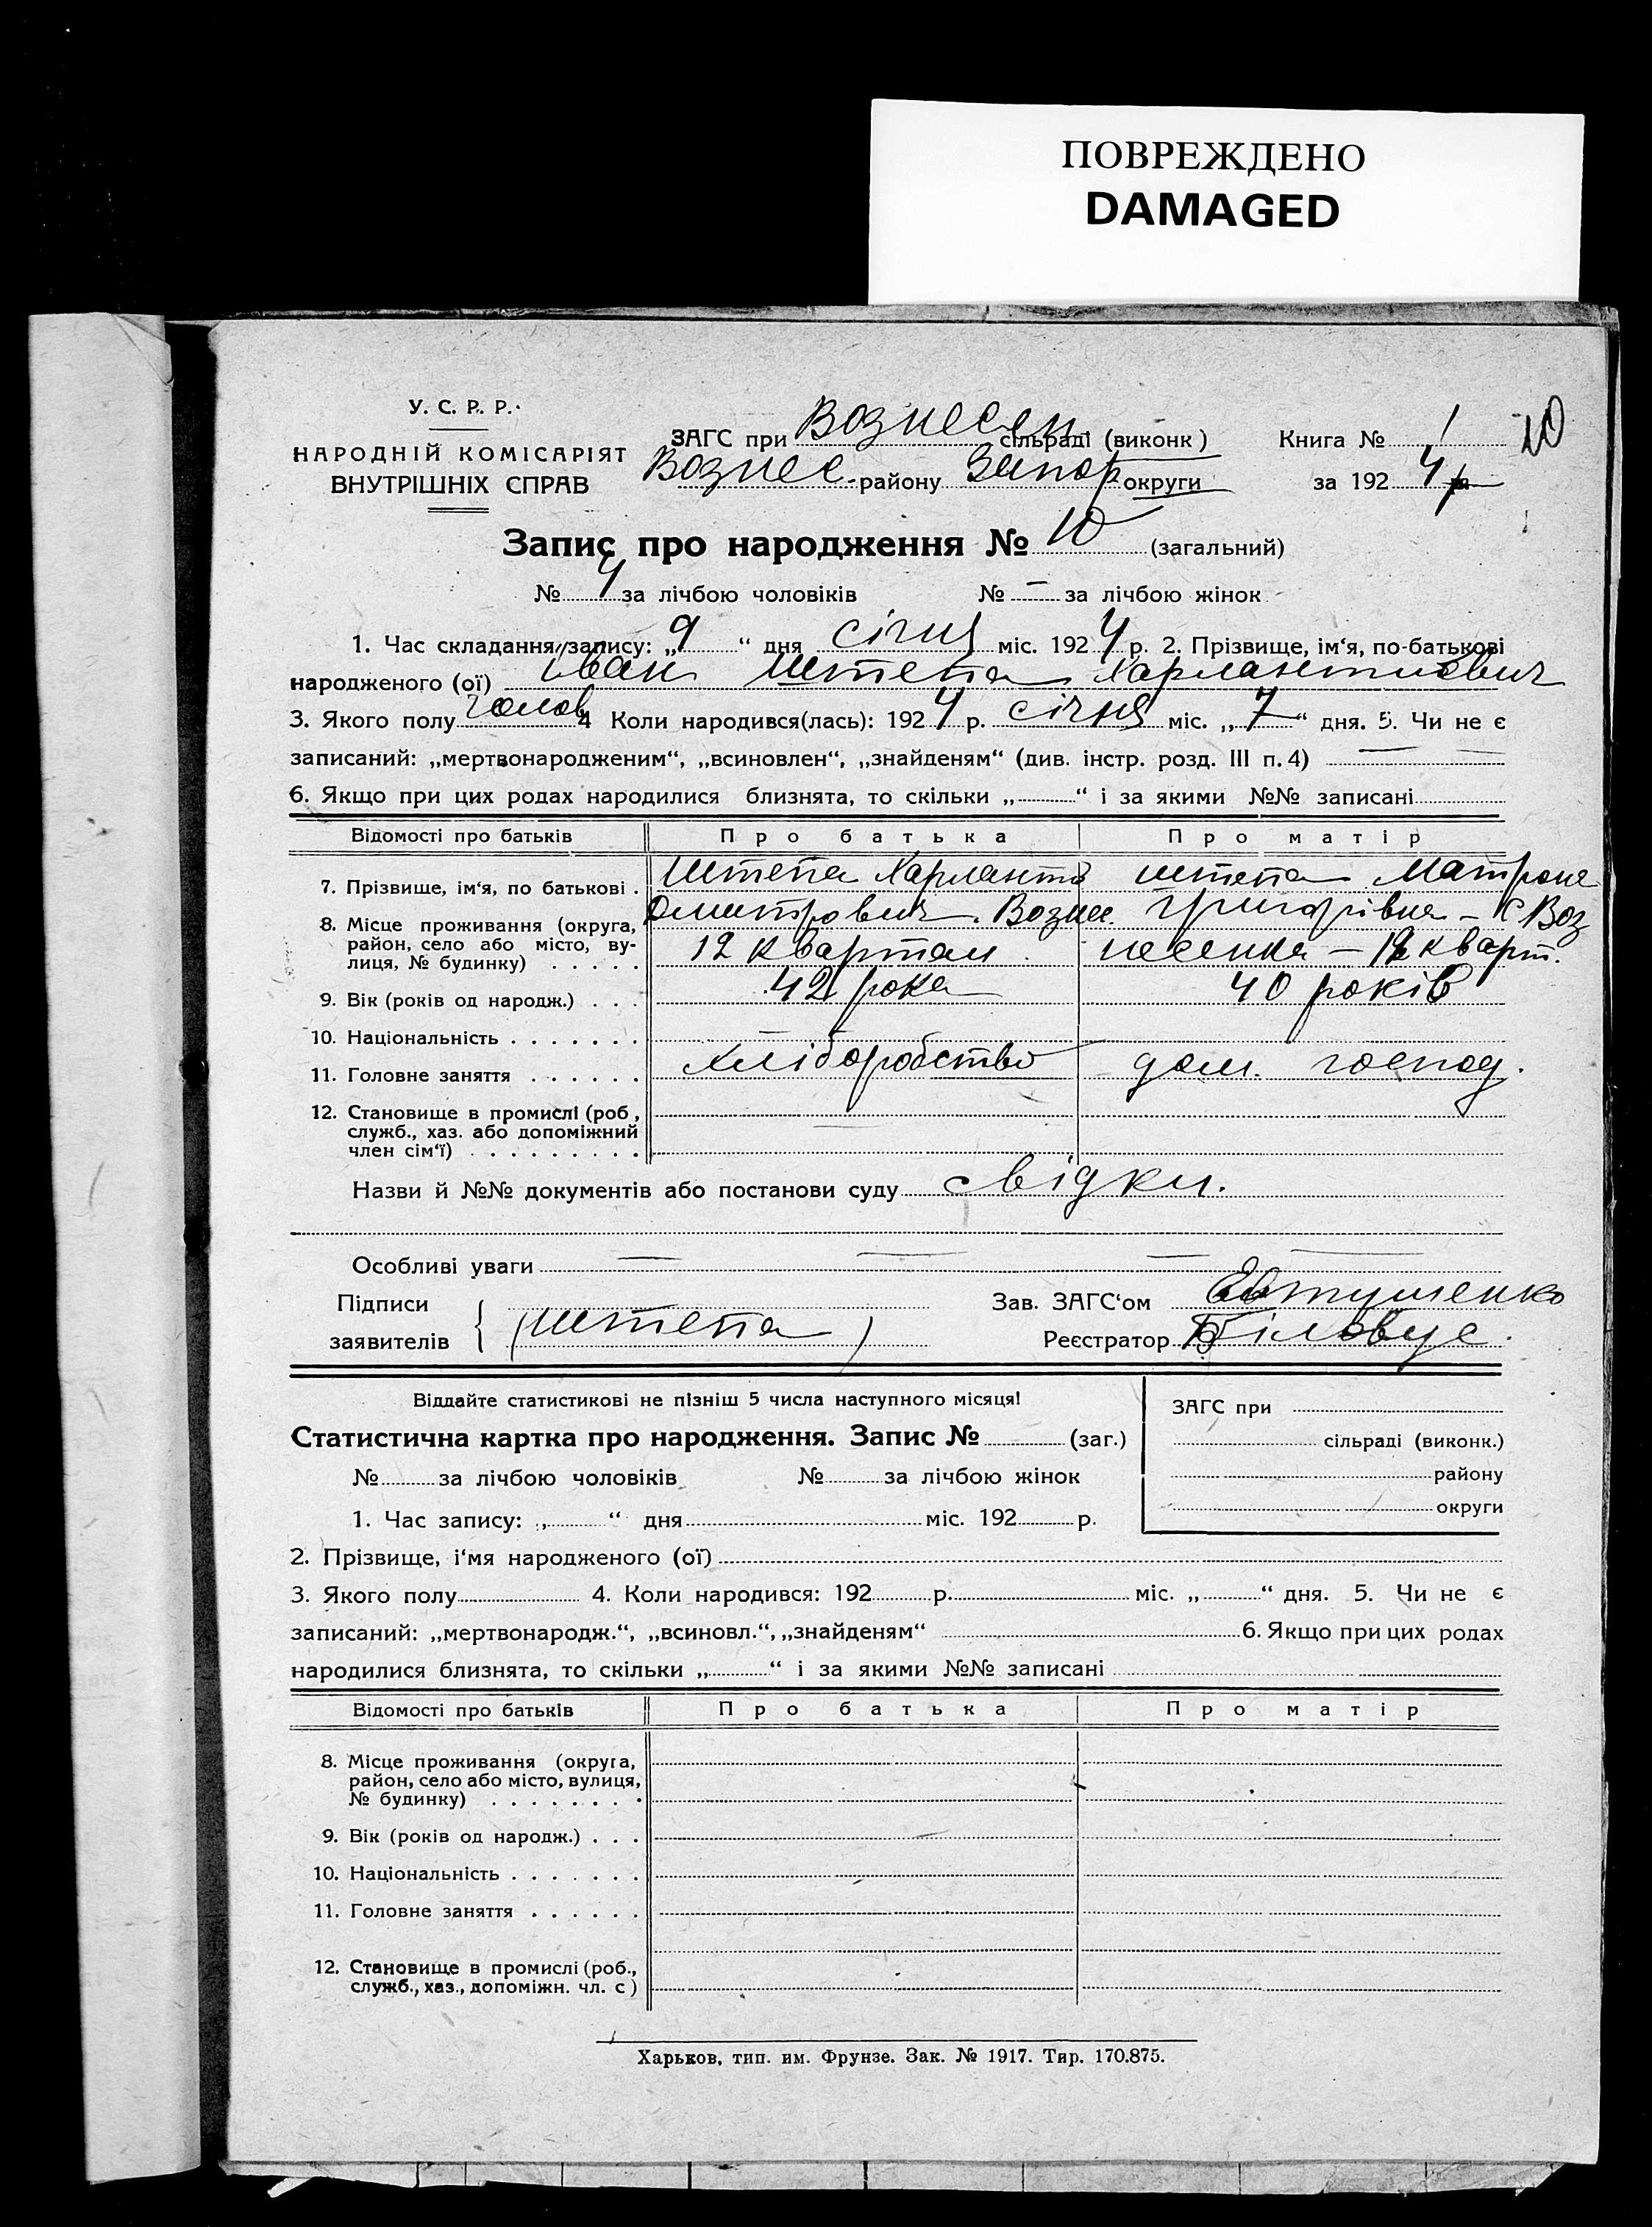 ПОВРЕЖДЕНО
DAMAGED
У. С. Р. Р.
НАРОДНІЙ КОМІСАРІЯТ
ВНУТРІШНІХ СПРАВ
ЗАГС при Вознесен. сільраді (виконк)
Вознес. району Запор округи
Книга № 1
за 1924 р
10
Запис про народження № 10 (загальний)
№ 4 за лічбою чоловіків № — за лічбою жінок
1. Час складання запису: „9“ дня січня міс. 1924 р. 2. Прізвище, ім‘я, по-батькові
народженого (ої) Іван Штепа Харлантиевич
3. Якого полу чолов 4 Коли народився(лась): 1924 р. січня міс. „7“ дня. 5. Чи не є
записаний: „мертвонародженим“, „всиновлен“, „знайденям“ (див. інстр. розд. III п. 4) — —
6. Якщо при цих родах народилися близнята, то скільки „ “ і за якими №№ записані
Відомості про батьків Про батька Про матір
7. Прізвище, ім‘я, по батькові . Штепа Харлантій Штепа Матрона
8. Місце проживання (округа, район, село або місто, вулиця, № будинку) Дмитрович. Возне. Григорівна – С Воз
12 квартал несенка – 12 кварт.
9. Вік (років од народж.) . . . 42 рока 40 років
10. Національність . . . . . . . —
11. Головне заняття . . . . . . хліборобство дом. господ.
12. Становище в промислі (роб,
служб., хаз. або допоміжний
член сім‘ї) . . . . . . . . .
Назви й №№ документів або постанови суду свідки.
Особливі уваги — — — —
Підписи
заявителів { (Штепа)
Зав. ЗАГС‘ом Евтушенко
Реєстратор Біловус.
Віддайте статистикові не пізніш 5 числа наступного місяця!
Статистична картка про народження. Запис № (заг.)
№ за лічбою чоловіків № за лічбою жінок
ЗАГС при
сільраді (виконк.)
району
округи
1. Час запису: „ “ дня міс. 192 р.
2. Прізвище, і‘мя народженого (ої)
3. Якого полу 4. Коли народився: 192 р. міс. „ “ дня. 5. Чи не є
записаний: „мертвонародж.“, „всиновл.“, „знайденям“ 6. Якщо при цих родах
народилися близнята, то скільки „ “ і за якими №№ записані
Відомості про батьків Про батька Про матір
8. Місце проживання (округа,
район, село або місто, вулиця,
№ будинку) . . . . . . . .
9. Вік (років од народж.) . . .
10. Національність . . . . . . .
11. Головне заняття . . . . . .
12. Становище в промислі (роб.,
служб., хаз., допоміжн. чл. с)
Харьков, тип. им. Фрунзе. Зак. № 1917. Тир. 170.875.